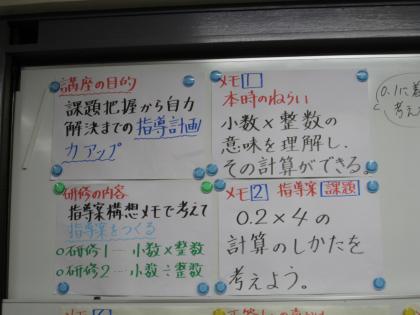 講座の目的
課題把握から自力
解決までの指導計画
力アップ
メモ1
本時のねらい
小数×整数の
意味を理解し、
その計算ができる。
研修の内容
指導案構想メモで考えて
指導案をつくる
○研修1…小数×整数
○研修2…小数÷整数
メモ2 指導案 課題
0.2×4の
計算のしかたを
考えよう。
0.1に着
考え